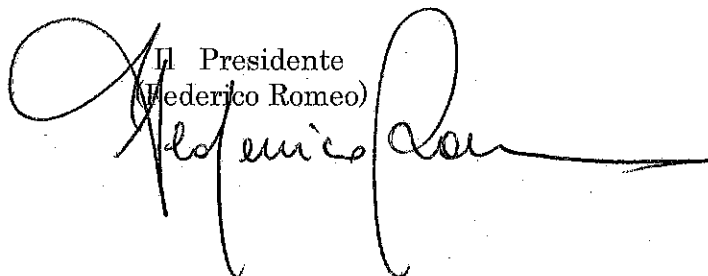 Il Presidente
(Federico Romeo)
Federico Rom